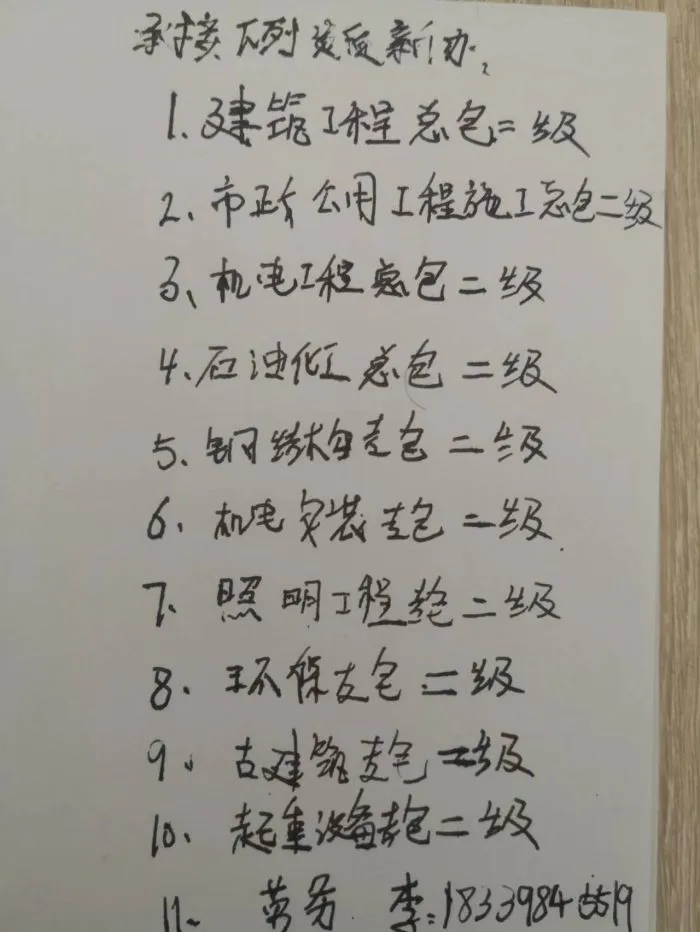 承接下列资质新办,
1.建筑工程总包二级
2、市政公用工程施工总包二级
3、机电工程总包二级
4.石油化工总包二级
5、钢结构专包二级
6、机电安装专包二级
7、照明工程专包二级
8、环保专包二级
9、古建筑专包二级
10、起重设备专包二级
11、劳务 李:18339845519